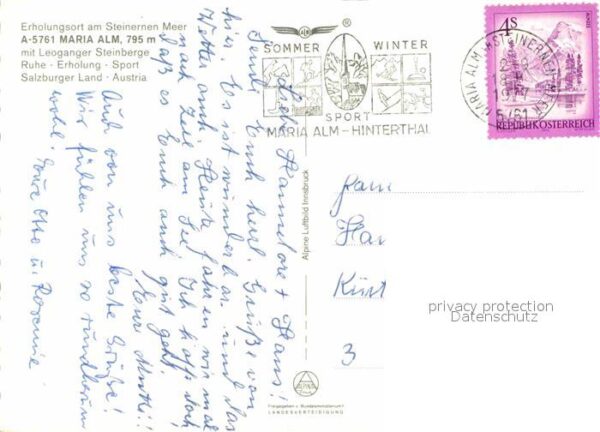 Erholungsort am Steinernen Meer
A-5761 MARIA ALM, 795 m
mit Leoganger Steinberge
Ruhe · Erholung · Sport
Salzburger Land · Austria
SOMMER WINTER
SPORT
MARIA ALM – HINTERTHAL
MARIA ALM AM STEINERNEN MEER
5761
4 S
REPUBLIK ÖSTERREICH
Liebe Hannelore + Hans!
Sende Euch herzl. Grüße von
hier. Es ist wunderbar und das
Wetter auch. Heute fahren wir mal
nach Zell am See. Ich hoffe doch
daß es Euch auch gut geht!
Eure
Auch von uns beste Grüße!
Wir fühlen uns so rundherum
wohl!
Eure Otto u. Rosemie
Alpine Luftbild Innsbruck
Fam
Han
Kürt
3
privacy protection
Datenschutz
ALPINE
Freigegeben v. Bundesministerium f.
LANDESVERTEIDIGUNG